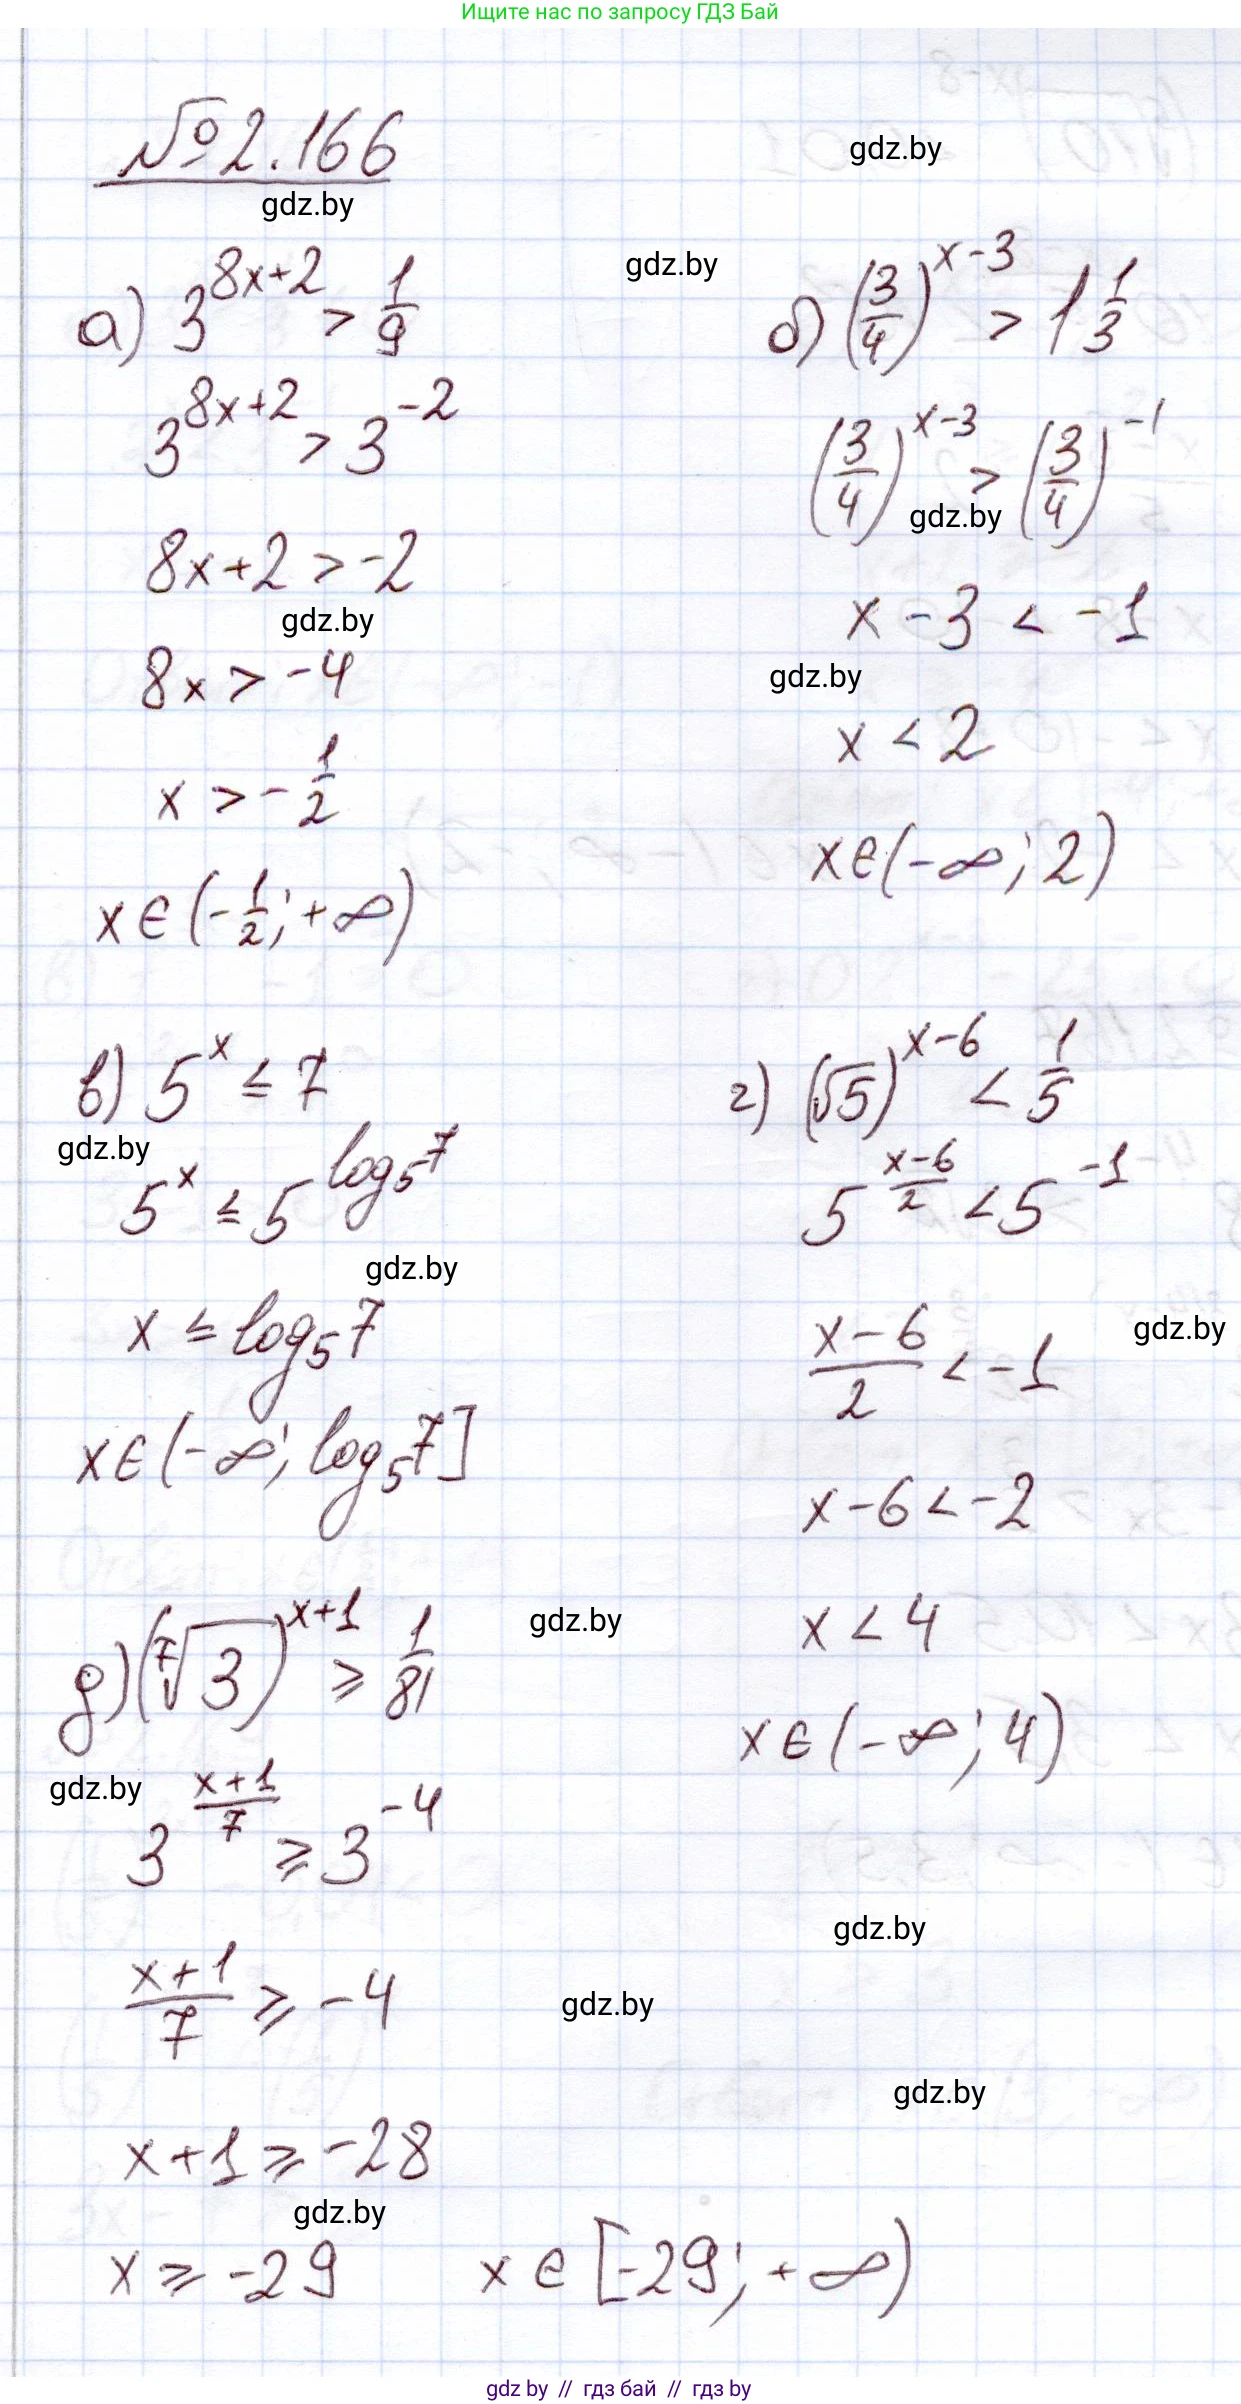 Ищите нас по запросу ГДЗ Бай
№ 2.166
gdz.by
gdz.by
gdz.by
а) 3^(8x+2) > 1/9
3^(8x+2) > 3^(-2)
8x+2 > -2
gdz.by
8x > -4
x > -1/2
x ∈ (-1/2; +∞)
б) (3/4)^(x-3) > 1 1/3
(3/4)^(x-3) > (3/4)^(-1)
gdz.by
x - 3 < -1
gdz.by
x < 2
x ∈ (-∞; 2)
в) 5^x ≤ 7
gdz.by
5^x ≤ 5^(log₅7)
gdz.by
x ≤ log₅7
x ∈ (-∞; log₅7]
г) (√5)^(x-6) < 1/5
5^((x-6)/2) < 5^(-1)
gdz.by
(x-6)/2 < -1
x-6 < -2
x < 4
x ∈ (-∞; 4)
д) (⁷√3)^(x+1) ≥ 1/81
gdz.by
gdz.by
3^((x+1)/7) ≥ 3^(-4)
gdz.by
(x+1)/7 ≥ -4
gdz.by
gdz.by
x+1 ≥ -28
gdz.by
x ≥ -29
x ∈ [-29; +∞)
gdz by // гдз бай // гдз by